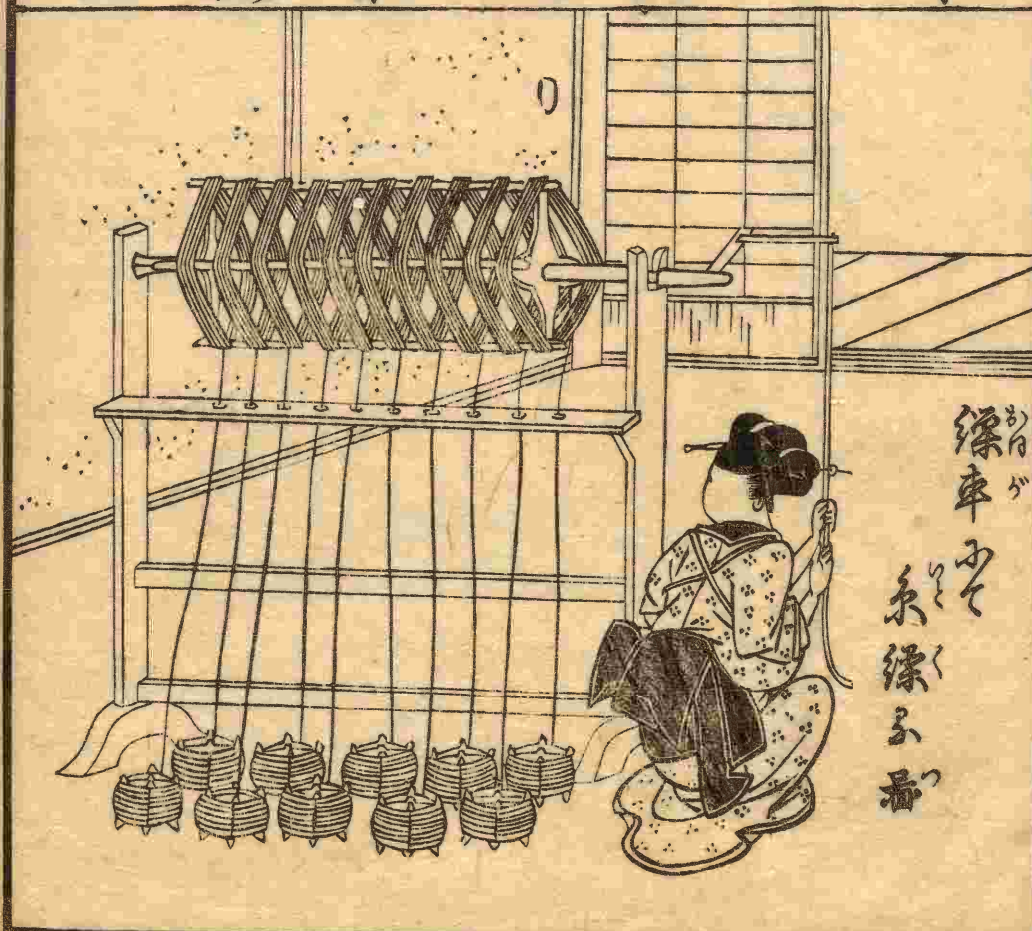 繰車にて
糸繰る図